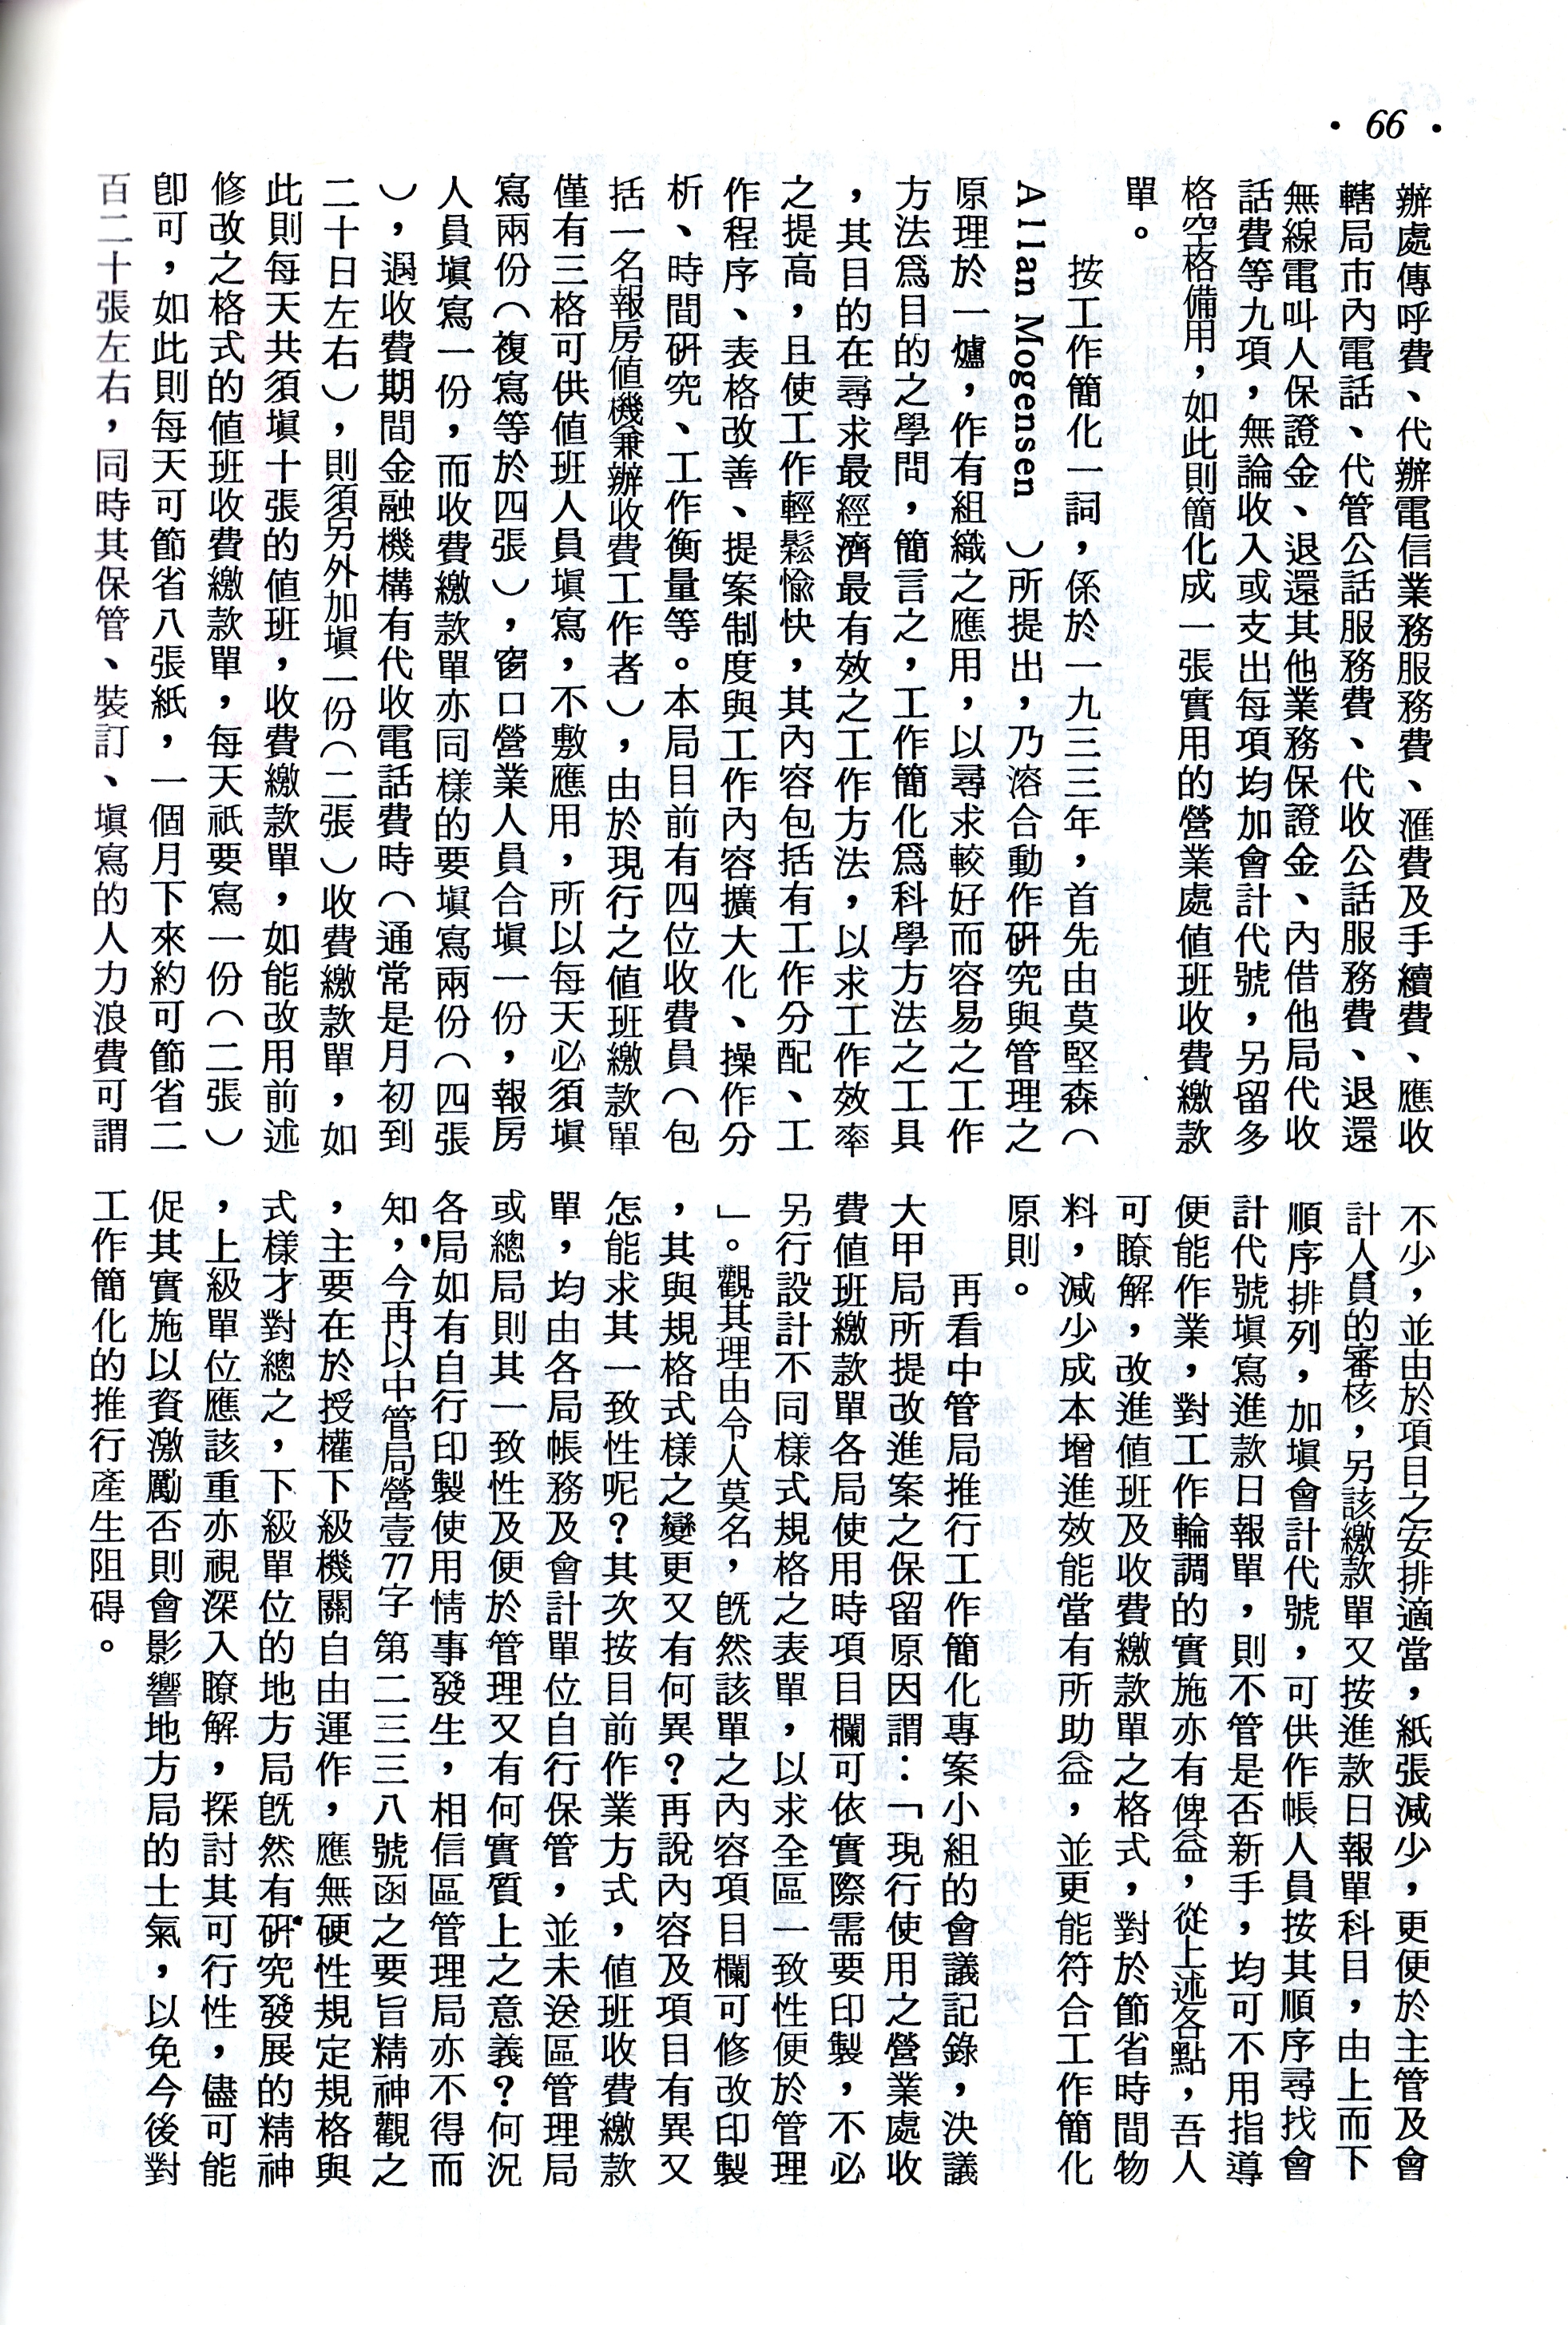 • 66 •
辦處傳呼費、代辦電信業務服務費、滙費及手續費、應收
轄局市內電話、代管公話服務費、代收公話服務費、退還
無線電叫人保證金、退還其他業務保證金、內借他局代收
話費等九項，無論收入或支出每項均加會計代號，另留多
格空格備用，如此則簡化成一張實用的營業處值班收費繳款
單。
按工作簡化一詞，係於一九三三年，首先由莫堅森（
Allan Mogensen ）所提出，乃溶合動作硏究與管理之
原理於一爐，作有組織之應用，以尋求較好而容易之工作
方法爲目的之學問，簡言之，工作簡化爲科學方法之工具
，其目的在尋求最經濟最有效之工作方法，以求工作效率
之提高，且使工作輕鬆愉快，其內容包括有工作分配、工
作程序、表格改善、提案制度與工作內容擴大化、操作分
析、時間硏究、工作衡量等。本局目前有四位收費員（包
括一名報房値機兼辦收費工作者），由於現行之値班繳款單
僅有三格可供値班人員塡寫，不敷應用，所以每天必須塡
寫兩份（複寫等於四張），窗口營業人員合塡一份，報房
人員塡寫一份，而收費繳款單亦同樣的要塡寫兩份（四張
），遇收費期間金融機構有代收電話費時（通常是月初到
二十日左右），則須另外加塡一份（二張）收費繳款單，如
此則每天共須塡十張的値班，收費繳款單，如能改用前述
修改之格式的値班收費繳款單，每天祇要寫一份（二張）
卽可，如此則每天可節省八張紙，一個月下來約可節省二
百二十張左右，同時其保管、裝訂、塡寫的人力浪費可謂
不少，並由於項目之安排適當，紙張減少，更便於主管及會
計人員的審核，另該繳款單又按進款日報單科目，由上而下
順序排列，加塡會計代號，可供作帳人員按其順序尋找會
計代號塡寫進款日報單，則不管是否新手，均可不用指導
便能作業，對工作輪調的實施亦有俾益，從上述各點，吾人
可瞭解，改進値班及收費繳款單之格式，對於節省時間物
料，減少成本增進效能當有所助益，並更能符合工作簡化
原則。
再看中管局推行工作簡化專案小組的會議記錄，決議
大甲局所提改進案之保留原因謂：「現行使用之營業處收
費値班繳款單各局使用時項目欄可依實際需要印製，不必
另行設計不同樣式規格之表單，以求全區一致性便於管理
」。觀其理由令人莫名，旣然該單之內容項目欄可修改印製
，其與規格式樣之變更又有何異？再說內容及項目有異又
怎能求其一致性呢？其次按目前作業方式，値班收費繳款
單，均由各局帳務及會計單位自行保管，並未送區管理局
或總局則其一致性及便於管理又有何實質上之意義？何況
各局如有自行印製使用情事發生，相信區管理局亦不得而
知，今再以中管局營壹77字第二三三八號函之要旨精神觀之
，主要在於授權下級機關自由運作，應無硬性規定規格與
式樣才對總之，下級單位的地方局旣然有硏究發展的精神
，上級單位應該重亦視深入瞭解，探討其可行性，儘可能
促其實施以資激勵否則會影響地方局的士氣，以免今後對
工作簡化的推行產生阻碍。